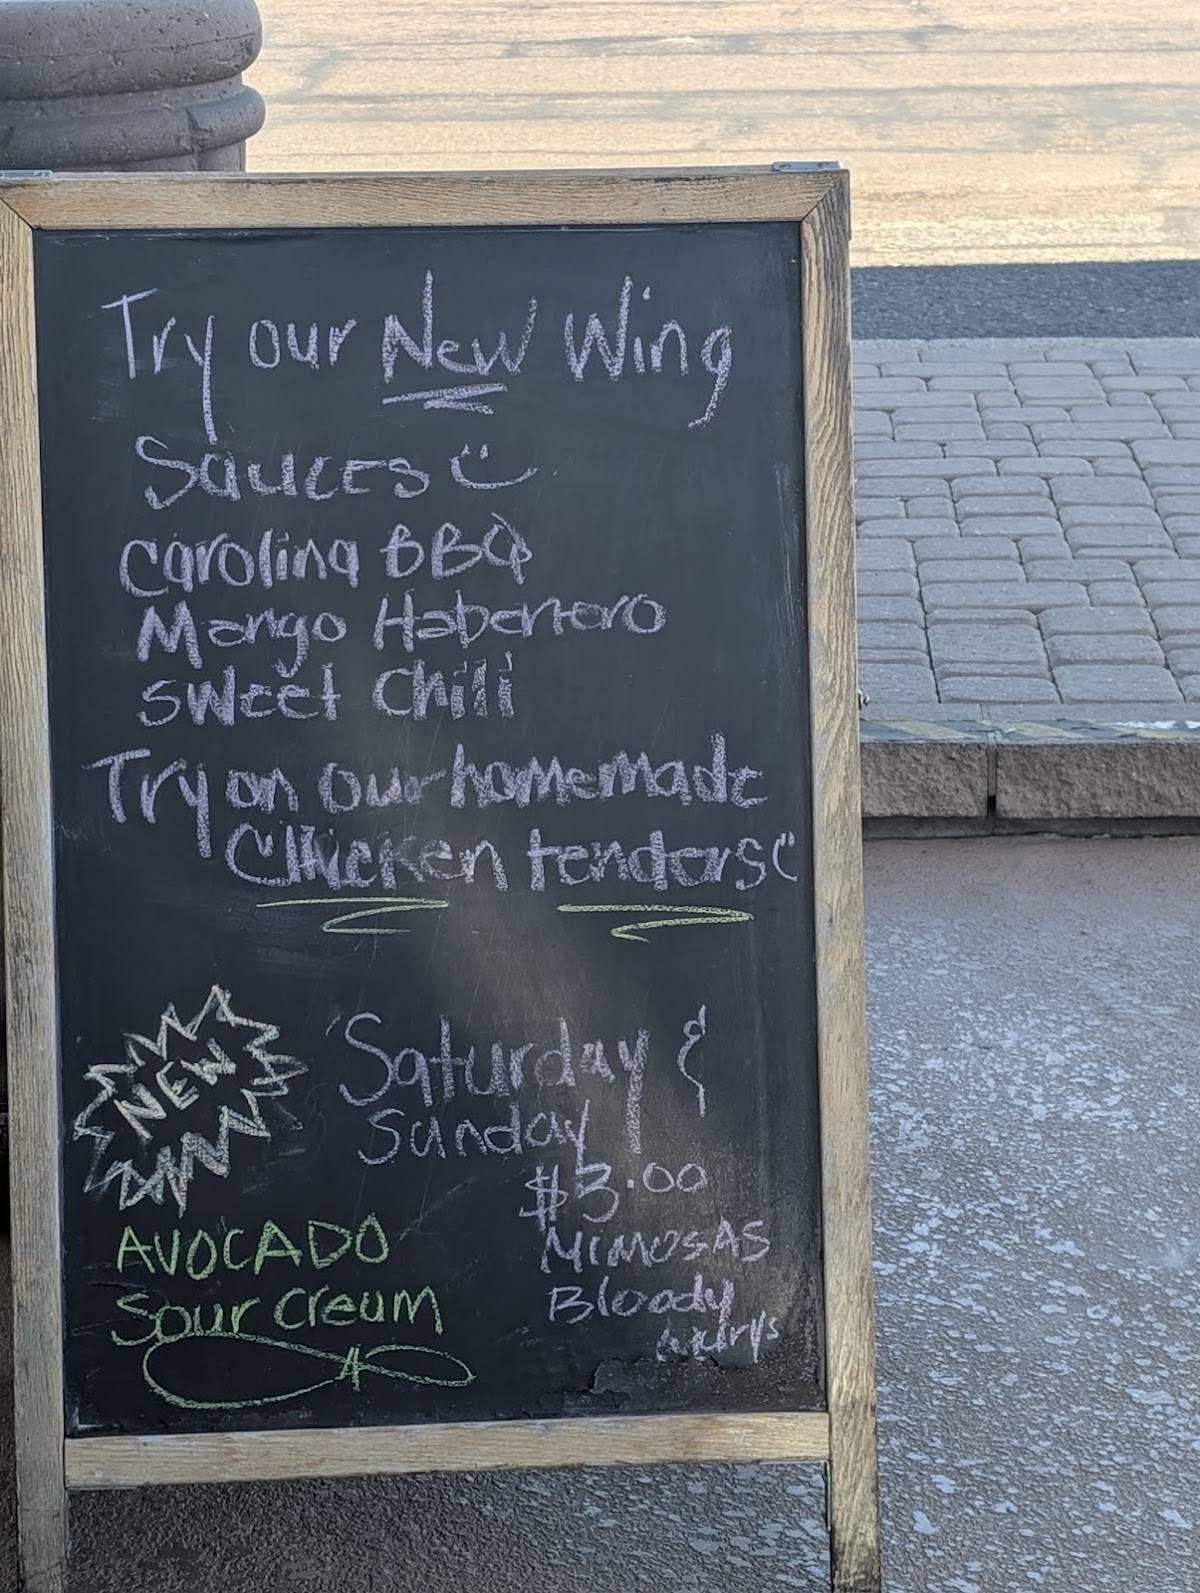 Try our New Wing
Sauces
Carolina BBQ
Mango Habenero
Sweet Chili
Try on our homemade
Chicken tenders
NEW
Saturday &
Sunday
$3.00
MIMOSAS
Bloody
AVOCADO
Sour Cream